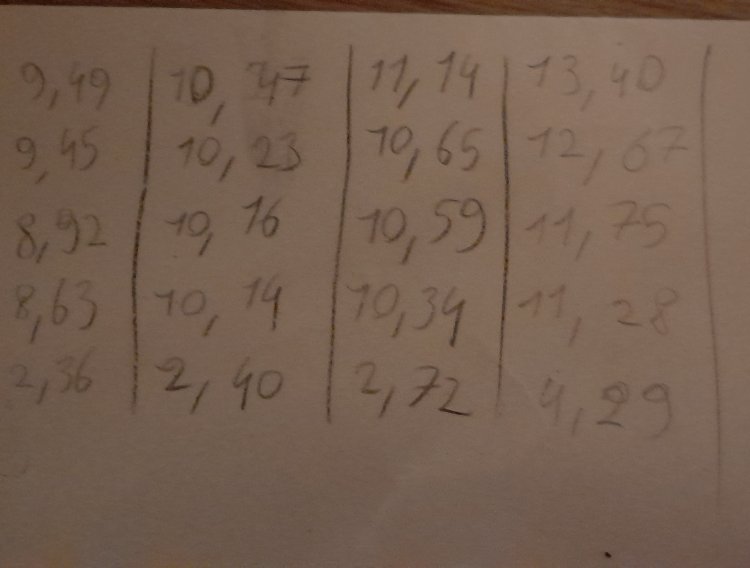 9,49 10,47 11,14 13,40
9,45 10,23 10,65 12,67
8,92 10,16 10,59 11,75
8,63 10,14 10,34 11,28
2,36 2,40 2,72 4,29